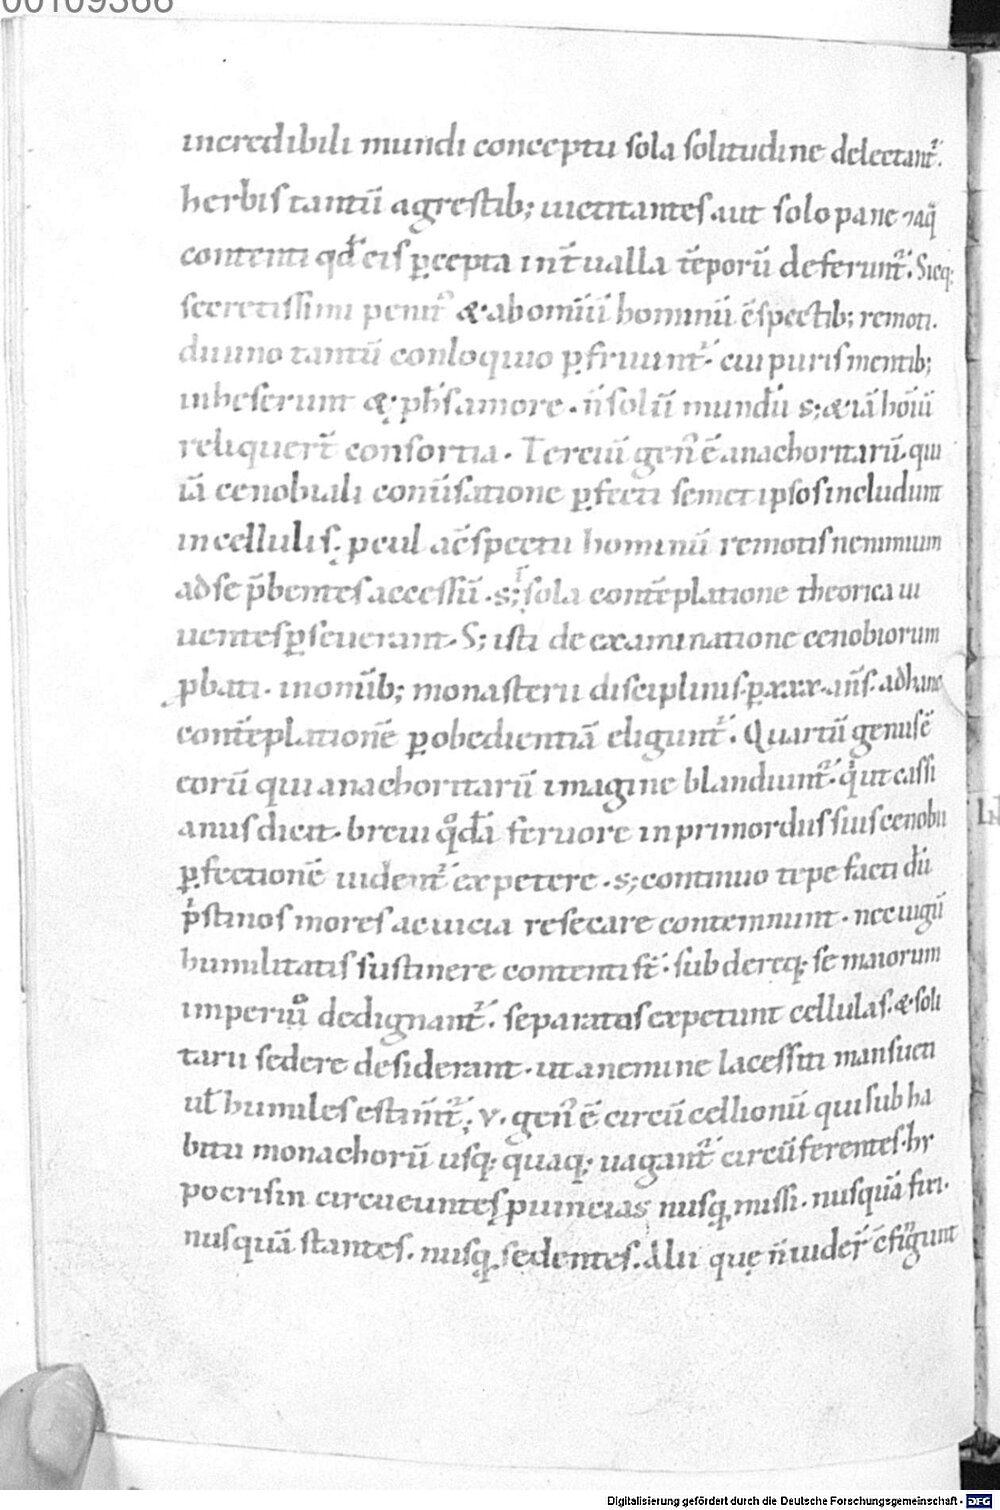 00109366
incredibili mundi conceptu sola solitudine delectant᷑.
herbis tantū agrestib; uictitantes aut solo pane ⁊ aq̄
contenti qđ eis ꝑcepta int̄ualla tēporū deferunt᷑. Sicq;
secretissimi penit᷒ & ab omīū hominū c̄spectib; remoti.
diuino tantū conloquio ꝑfruunt᷑. cui puris mentib;
inheserunt & ꝓpt̄ ei᷒ amore. n̄ solū mundū s; & iā hoīū
reliquer̄t consortia. Terciū gen᷒ ē anachoritarū. qui
iā cenobiali conūsatione ꝑfecti semet ipsos includunt
in cellulis. ꝓcul a c̄spectu hominū remotis nemini um
ad se p̄bentes accessū. s; sola contēplatione theorica ui
uentes ꝑseuerant. S; isti de examinatione cenobiorum
ꝓbati. in omīb; monasterii disciplinis. ꝑ xxx. ann̄s. ad hanc
contēplationē ꝑ obedientiā eligunt᷑. Quartū genus ē
eorū qui anachoritarū imagine blandiunt᷑. q̇ ut cassi
anus dicit. breui qͦdā feruore in primordiis sui cenobii
ꝑfectionē uident᷑ expetere. s; continuo tepefacti dū
p̍stinos mores ac uicia resecare contemnunt. nec iugū
humilitatis sustinere contenti st̄. subdereq; se maiorum
imperiūͦ dedignant᷑. separatas expetunt cellulas. & soli
tarii sedere desiderant. ut a nemine lacessiti mansueti
ul̄ humiles estim̄t᷑; v. gen᷒ ē circūcellionū qui sub ha
bitu monachorū usq; quaq; uagant᷑ circūferentes. hy
pocrisin circueuntes ꝓuincias nusq̄ missi. nusquā fixi.
nusquā stantes. nusq̄ sedentes. Alii quę n̄ uider̄ c̄fingunt
Digitalisierung gefördert durch die Deutsche Forschungsgemeinschaft - DFG